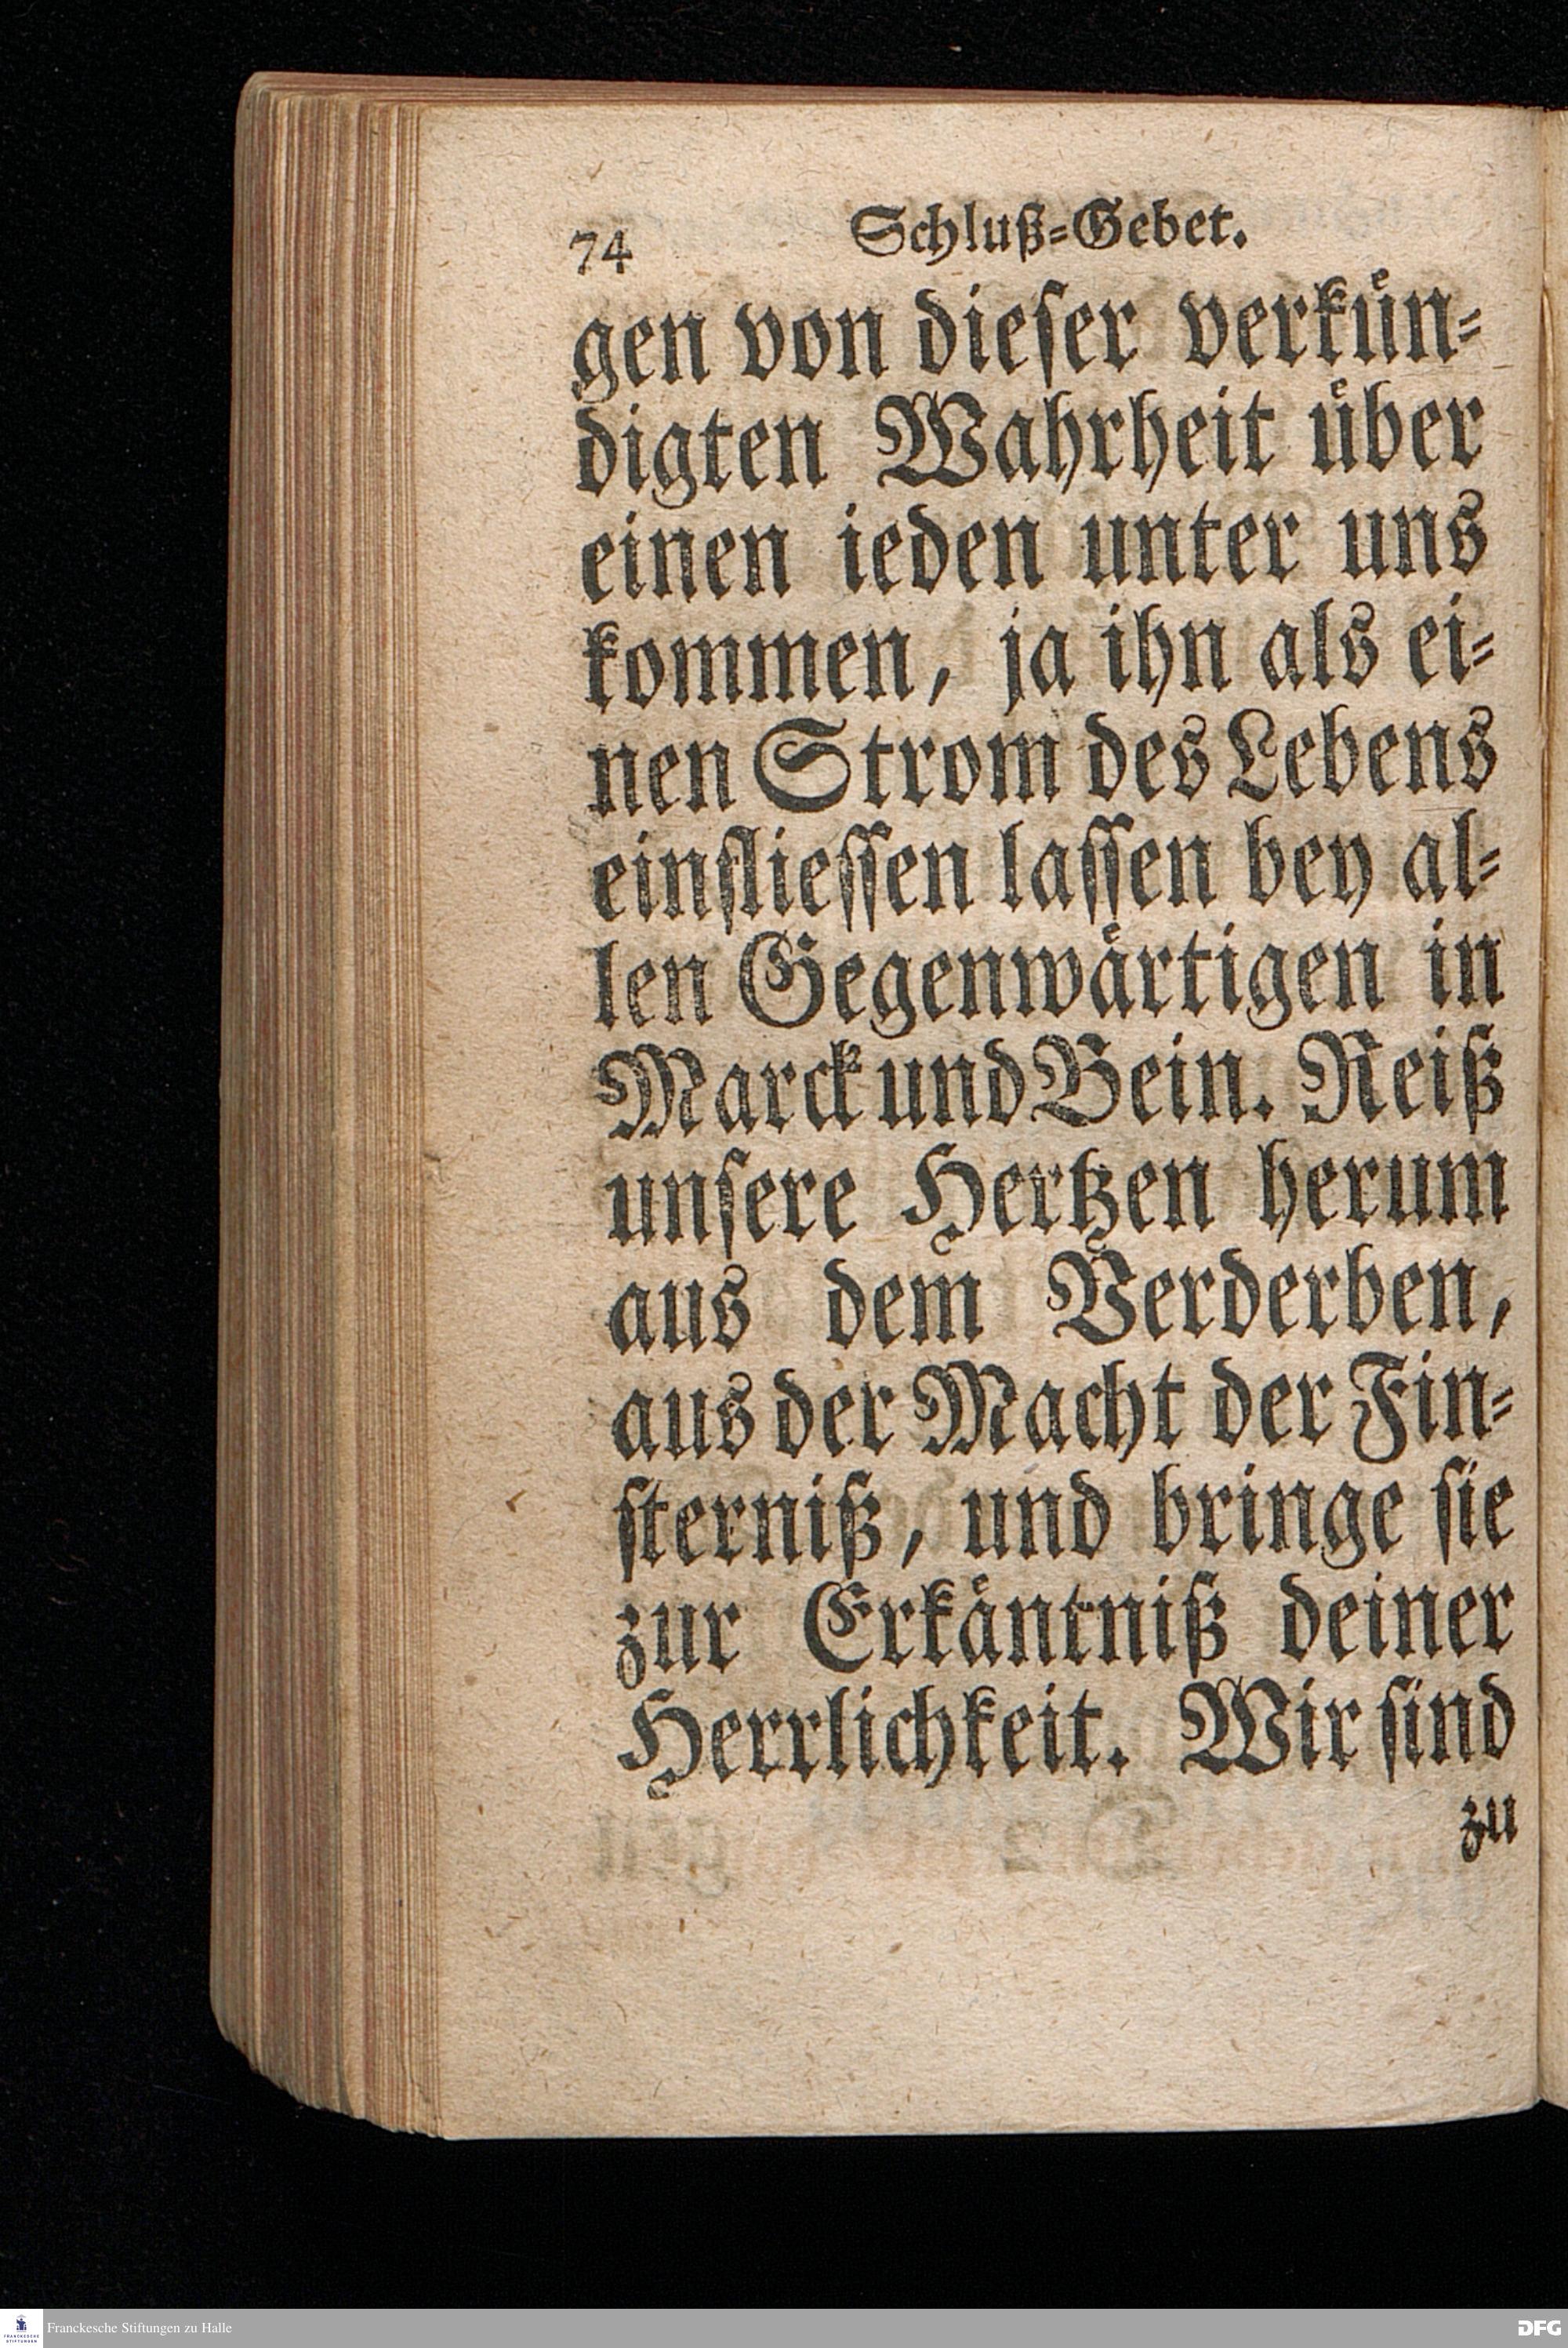 74 Schluß=Gebet.
gen von dieſer verkuͤn=
digten Wahrheit uͤber
einen ieden unter uns
kommen, ja ihn als ei=
nen Strom des Lebens
einflieſſen laſſen bey al=
len Gegenwaͤrtigen in
Marck und Bein. Reiß
unſere Hertzen herum
aus dem Verderben,
aus der Macht der Fin=
ſterniß, und bringe ſie
zur Erkaͤntniß deiner
Herrlichkeit. Wir ſind
zu
FRANCKESCHE STIFTUNGEN
Franckesche Stiftungen zu Halle
DFG